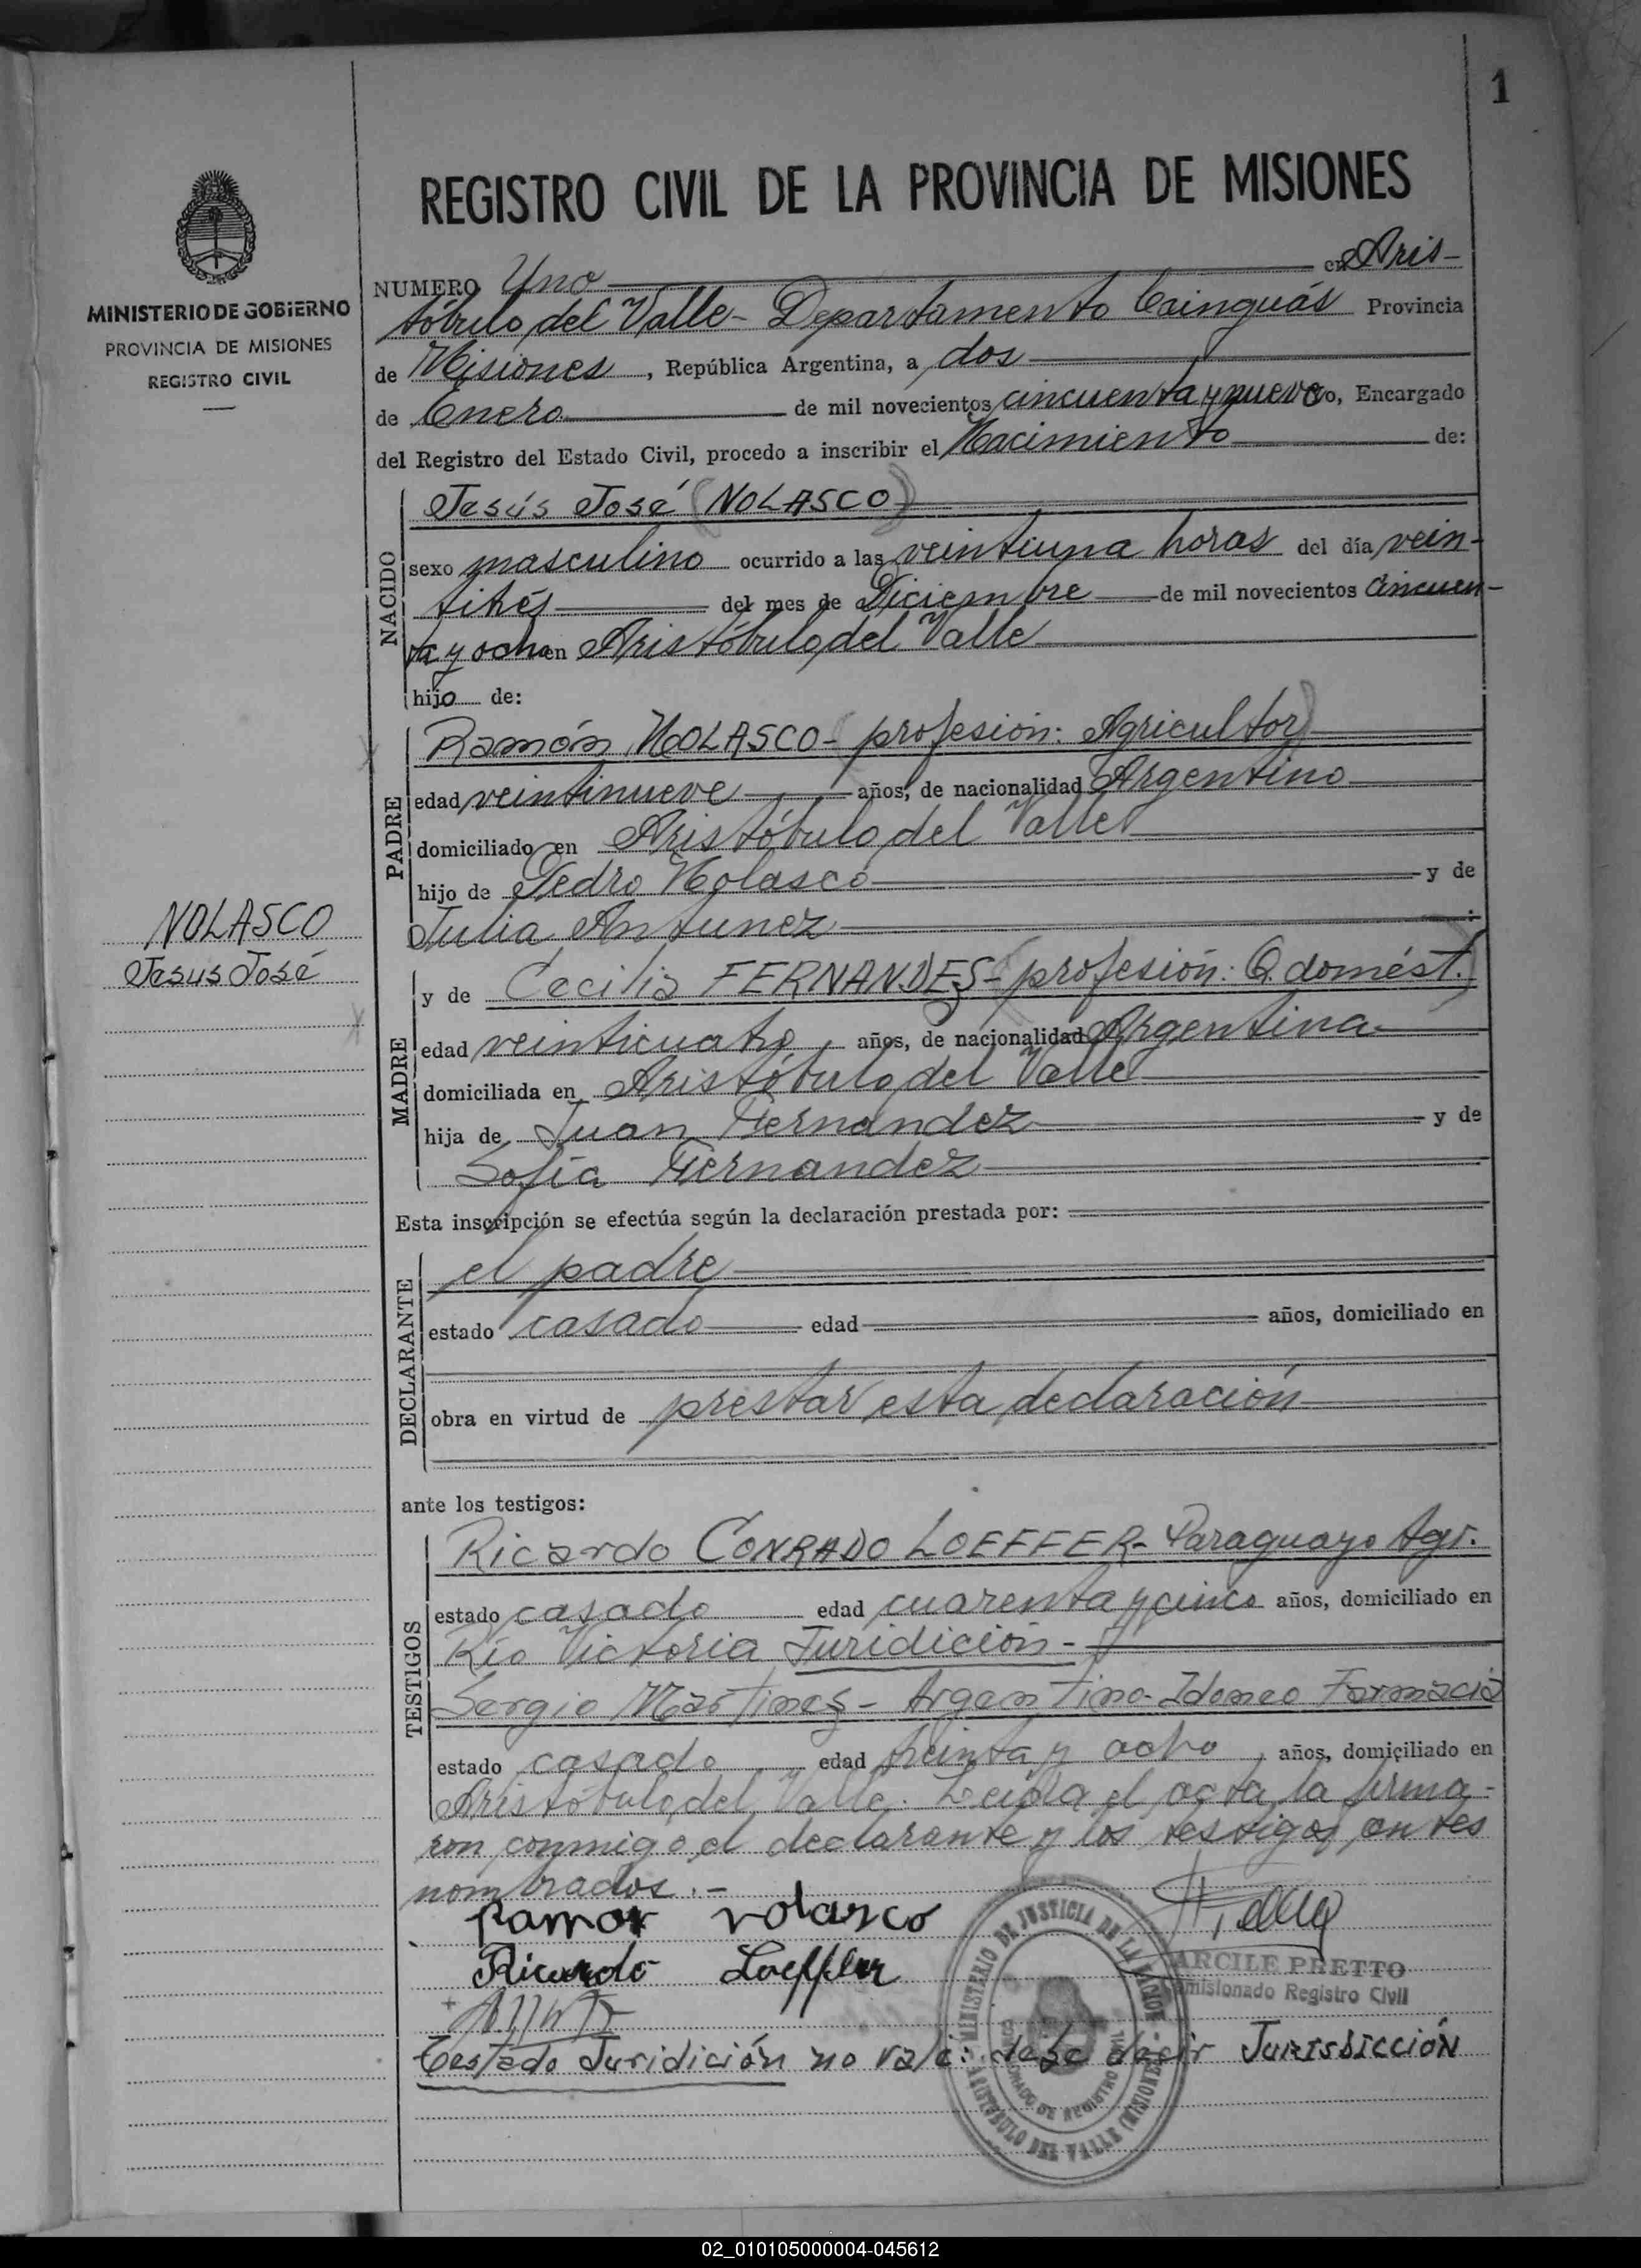 1
REGISTRO CIVIL DE LA PROVINCIA DE MISIONES
MINISTERIO DE GOBIERNO
PROVINCIA DE MISIONES
REGISTRO CIVIL
NUMERO Uno en Aris-
tóbulo del Valle- Departamento Cainguás Provincia
de Misiones, República Argentina, a dos
de Enero de mil novecientos cincuenta y nueve yo, Encargado
del Registro del Estado Civil, procedo a inscribir el Nacimiento de:
NACIDO
Jesús José (NOLASCO)
sexo masculino ocurrido a las veintiuna horas del día vein-
titrés del mes de Diciembre de mil novecientos cincuen-
ta y ocho en Aristóbulo del Valle
hijo de:
PADRE
Ramón NOLASCO- (profesión: Agricultor)
edad veintinueve años, de nacionalidad Argentino
domiciliado en Aristóbulo del Valle
hijo de Pedro Nolasco y de
Julia Antunez
NOLASCO
Jesus José
MADRE
y de Cecilia FERNANDES- (profesión: Q. domést.)
edad veinticuatro años, de nacionalidad Argentina
domiciliada en Aristóbulo del Valle
hija de Juan Fernandez y de
Sofía Fernandez
Esta inscripción se efectúa según la declaración prestada por:
DECLARANTE
el padre
estado casado edad años, domiciliado en
obra en virtud de prestar esta declaración
ante los testigos:
TESTIGOS
Ricardo CONRADO LOEFFER- Paraguayo Agr.
estado casado edad cuarenta y cinco años, domiciliado en
Río Victoria Juridición-
Sergio Martines- Argentino- Idoneo Farmacia
estado casado edad treinta y ocho años, domiciliado en
Aristóbulo del Valle. Leída el acta, la firma-
ron conmigo el declarante y los testigos antes
nombrados.-
Ramon nolasco
Ricardo Loeffler
ARCILE PRETTO
Comisionado Registro Civil
MINISTERIO DE JUSTICIA DE LA NACION
ARISTOBULO DEL VALLE (MISIONES)
Testado Juridición no vale: debe decir JURISDICCIÓN
02_010105000004-045612